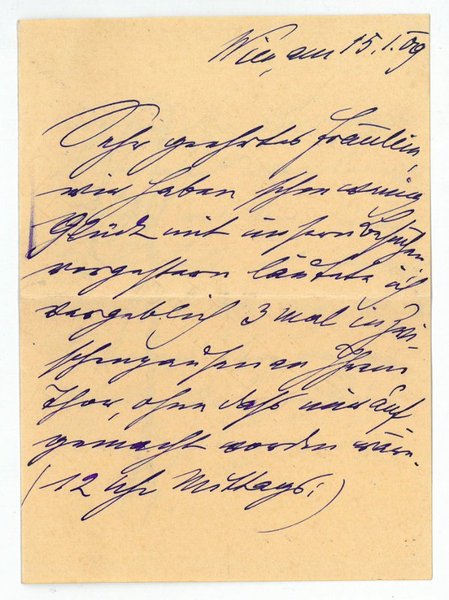 Wien, am 15.I.09
Sehr geehrtes Fräulein,
wir haben schon wenig
Glück mit unsern Besuchen
vorgestern läutete ich
vergeblich 3 mal in Zwi
schenpausen an Ihrem
Thor, ohne dass mir auf
gemacht worden wäre.
(12 Uhr Mittags!)